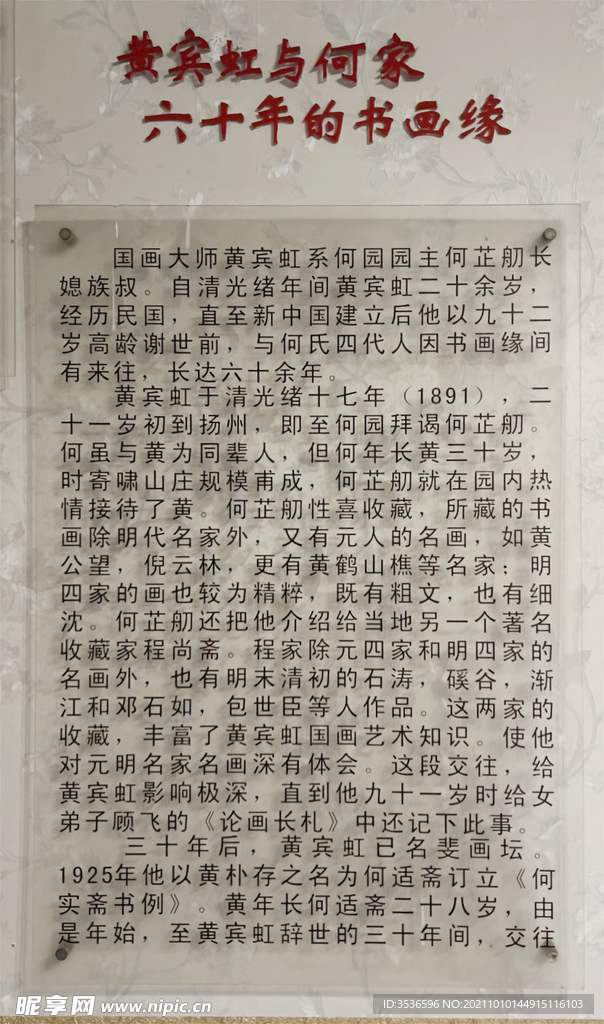 黄宾虹与何家
六十年的书画缘
国画大师黄宾虹系何园园主何芷舠长
媳族叔。自清光绪年间黄宾虹二十余岁，
经历民国，直至新中国建立后他以九十二
岁高龄谢世前，与何氏四代人因书画缘间
有来往，长达六十余年。
黄宾虹于清光绪十七年（1891），二
十一岁初到扬州，即至何园拜谒何芷舠。
何虽与黄为同辈人，但何年长黄三十岁，
时寄啸山庄规模甫成，何芷舠就在园内热
情接待了黄。何芷舠性喜收藏，所藏的书
画除明代名家外，又有元人的名画，如黄
公望，倪云林，更有黄鹤山樵等名家；明
四家的画也较为精粹，既有粗文，也有细
沈。何芷舠还把他介绍给当地另一个著名
收藏家程尚斋。程家除元四家和明四家的
名画外，也有明末清初的石涛，磎谷，渐
江和邓石如，包世臣等人作品。这两家的
收藏，丰富了黄宾虹国画艺术知识。使他
对元明名家名画深有体会。这段交往，给
黄宾虹影响极深，直到他九十一岁时给女
弟子顾飞的《论画长札》中还记下此事。
三十年后，黄宾虹已名斐画坛。
1925年他以黄朴存之名为何适斋订立《何
实斋书例》。黄年长何适斋二十八岁，由
是年始，至黄宾虹辞世的三十年间，交往
昵享网 www.nipic.cn
ID:3536596 NO:20211010144915116103